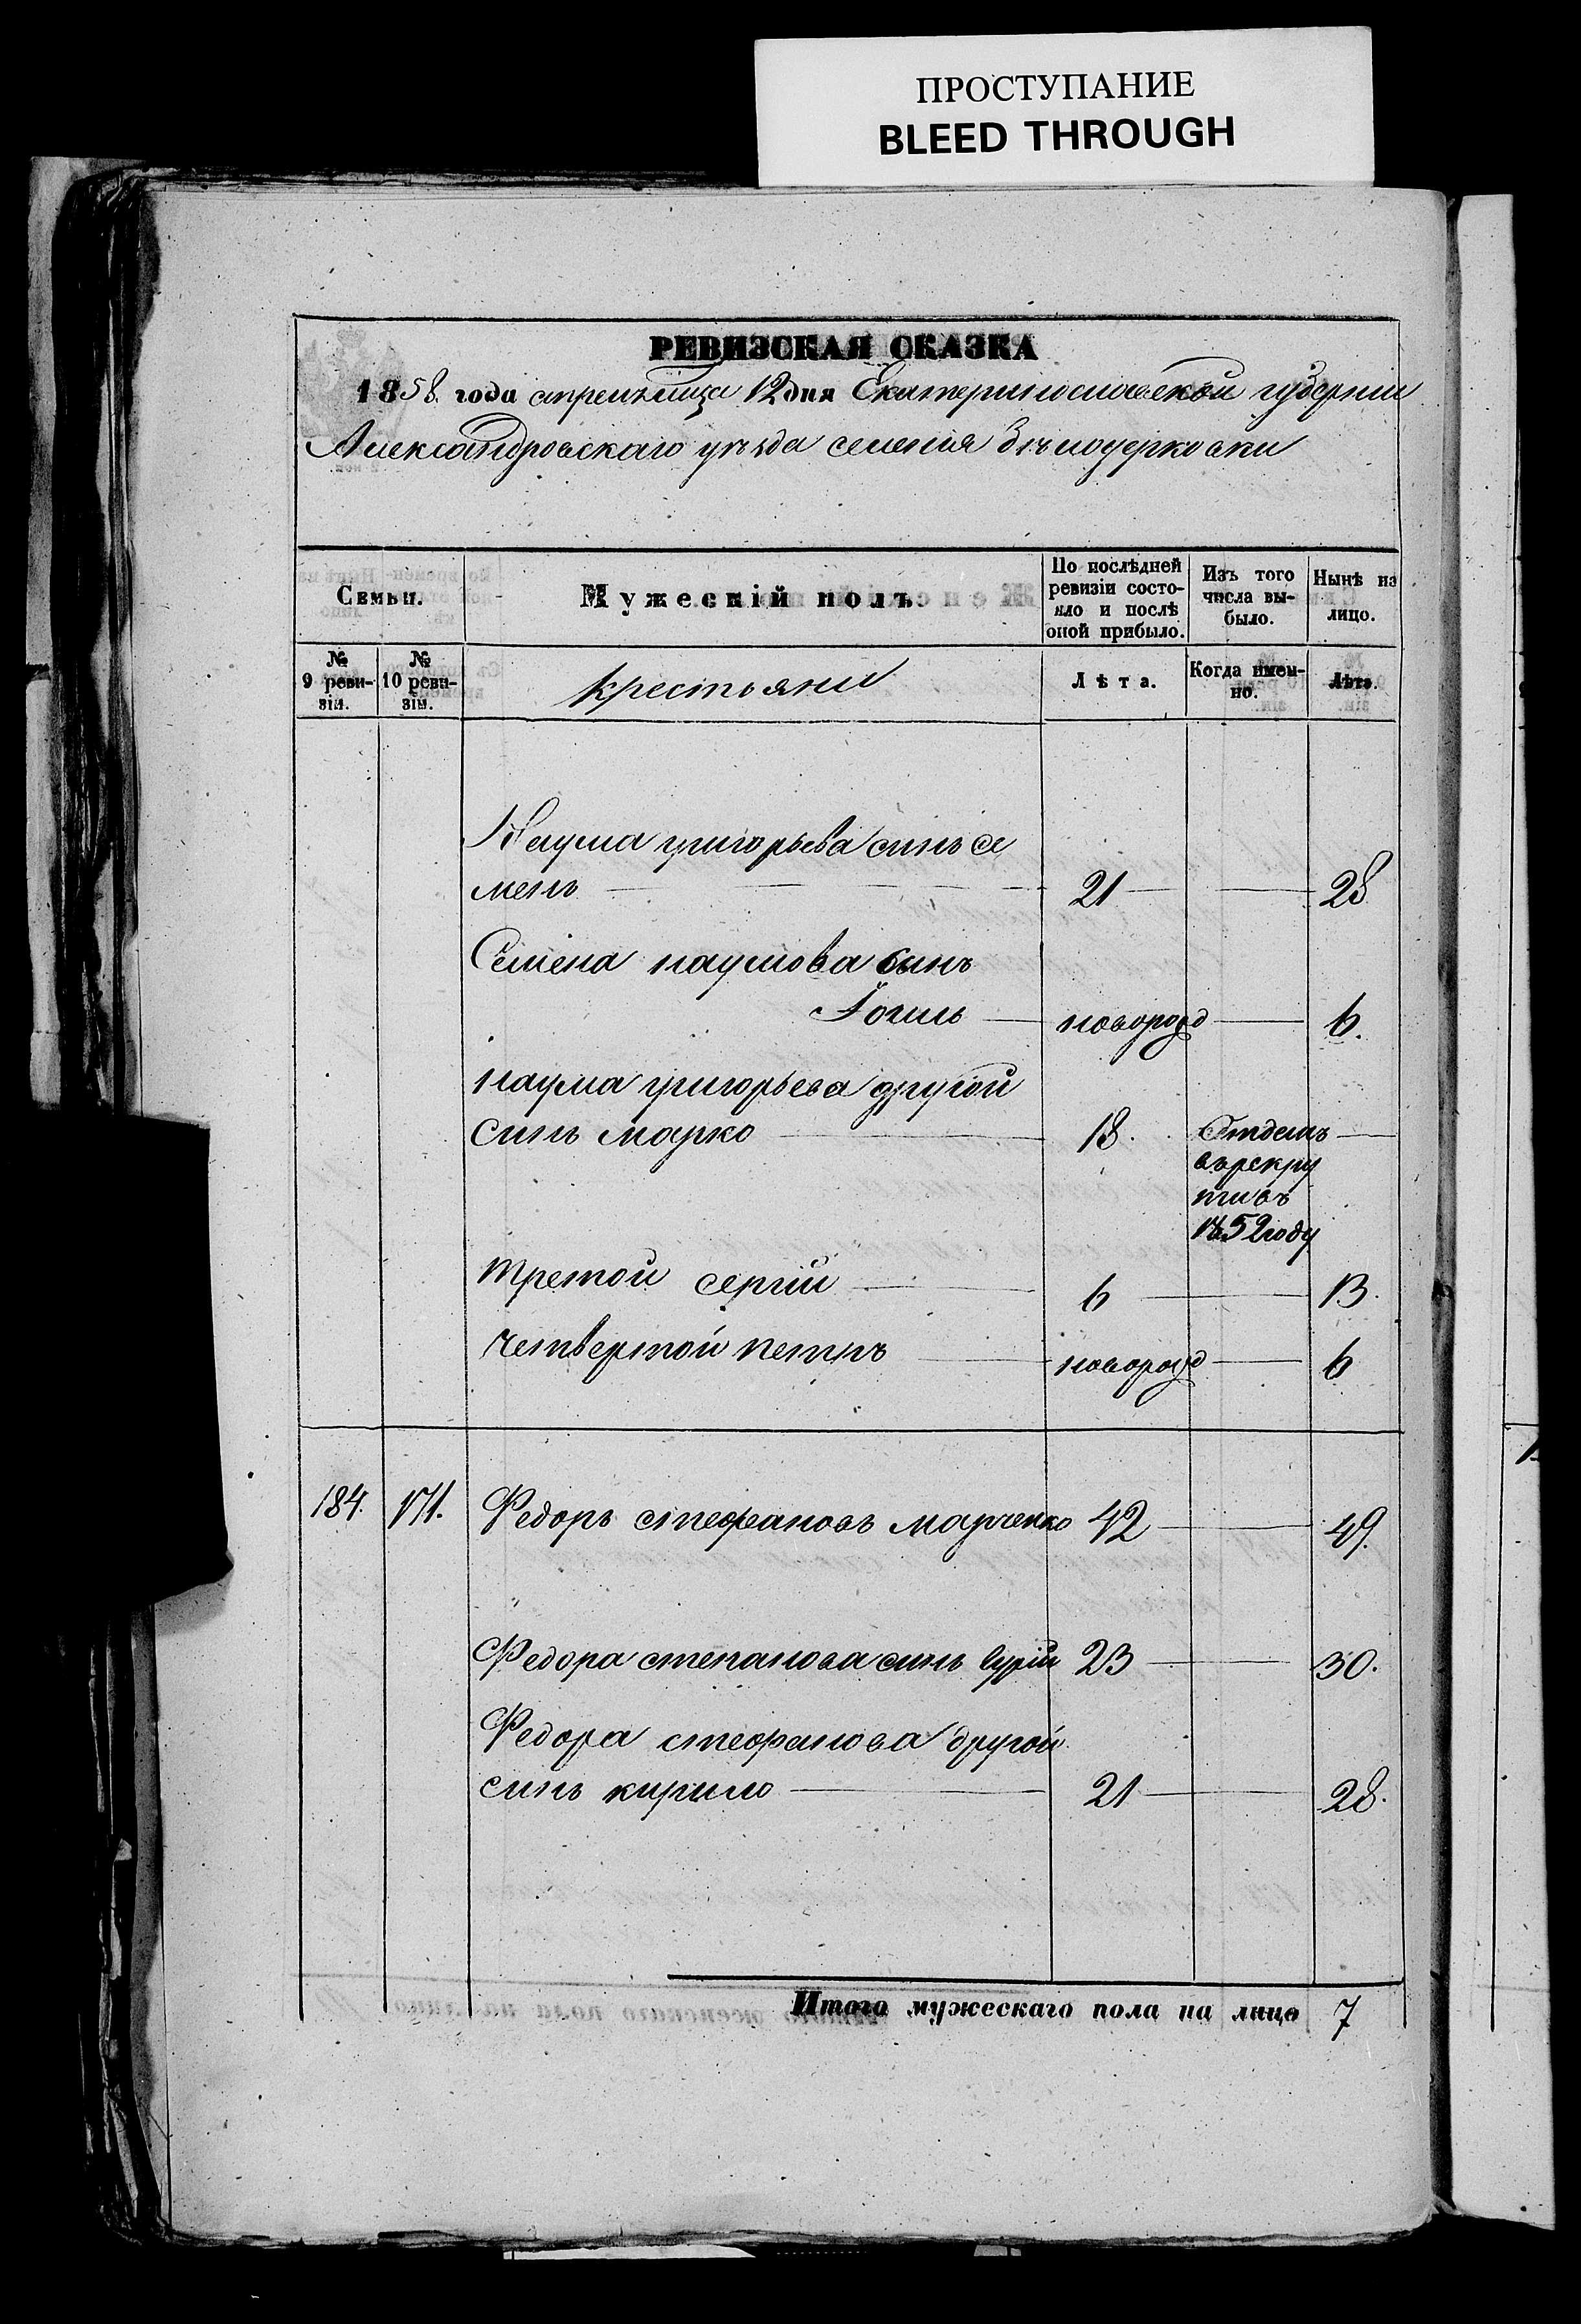 ПРОСТУПАНИЕ
BLEED THROUGH
РЕВИЗСКАЯ СКАЗКА
1858 года апреля 12 дня Екатеринославской губернии
Александровскаго уезда селения
Семьи.
Мужескій полъ.
По послѣдней ревизіи состояло и послѣ оной прибыло.
Изъ того числа выбыло.
Нынѣ на лицо.
№ 9 ревизіи.
№ 10 ревизіи.
крестьяни
Лѣта.
Когда именно.
Лѣта.
Наума григорьева синъ се
менъ 21 28
Семена наумова сынъ
новорожд 6.
наума григорьева другой
синъ марко 18. Отданъ
въ рекру
ти въ
1852 году
третой сергій 6 13.
четвертой петръ новорожд 6
184. 171. Федоръ стефановъ марченко 42 49.
Федора степанова синъ 23 30.
Федора стефанова другой
синъ кирило 21 28.
Итого мужескаго пола на лицо 7